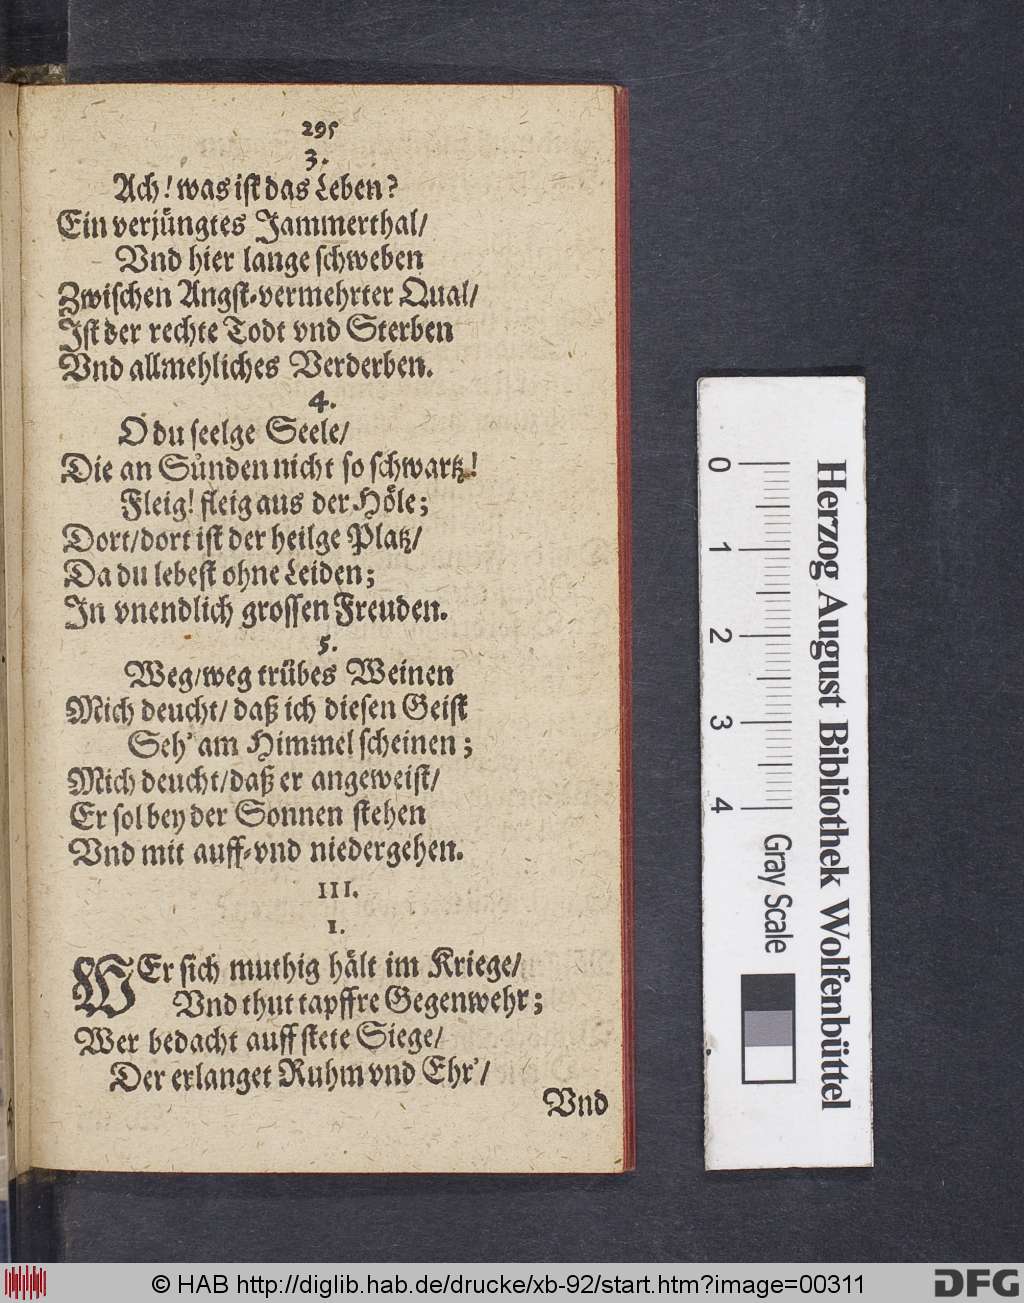 295
3.
Ach! was ist das Leben?
Ein verjüngtes Jammerthal/
Vnd hier lange schweben
Zwischen Angst-vermehrter Qual/
Ist der rechte Todt vnd Sterben
Vnd allmehliches Verderben.
4.
O du seelge Seele/
Die an Sünden nicht so schwartz!
Fleig! fleig aus der Höle;
Dort/dort ist der heilge Platz/
Da du lebest ohne Leiden;
In vnendlich grossen Freuden.
5.
Weg/weg trübes Weinen
Mich deucht/ daß ich diesen Geist
Seh' am Himmel scheinen;
Mich deucht/daß er angeweist/
Er sol bey der Sonnen stehen
Vnd mit auff-vnd niedergehen.
III.
1.
WEr sich muthig hält im Kriege/
Vnd thut tapffre Gegenwehr;
Wer bedacht auff stete Siege/
Der erlanget Ruhm vnd Ehr'/
Vnd
0 1 2 3 4
Gray Scale
Herzog August Bibliothek Wolfenbüttel
© HAB http://diglib.hab.de/drucke/xb-92/start.htm?image=00311
DFG